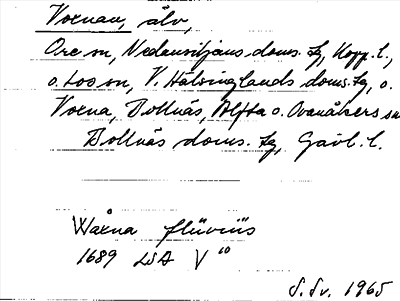 Voxnan, älv,
Ore sn, Nedansiljans doms. tg, Kopp. l.,
o. Loos sn, V. Hälsinglands doms. tg, o.
Voxna, Bollnäs, Alfta o. Ovanåkers sn
Bollnäs doms. tg, Gävl. l.
Wåxna flüviüs
1689 LSA V 10
S. Sv. 1965